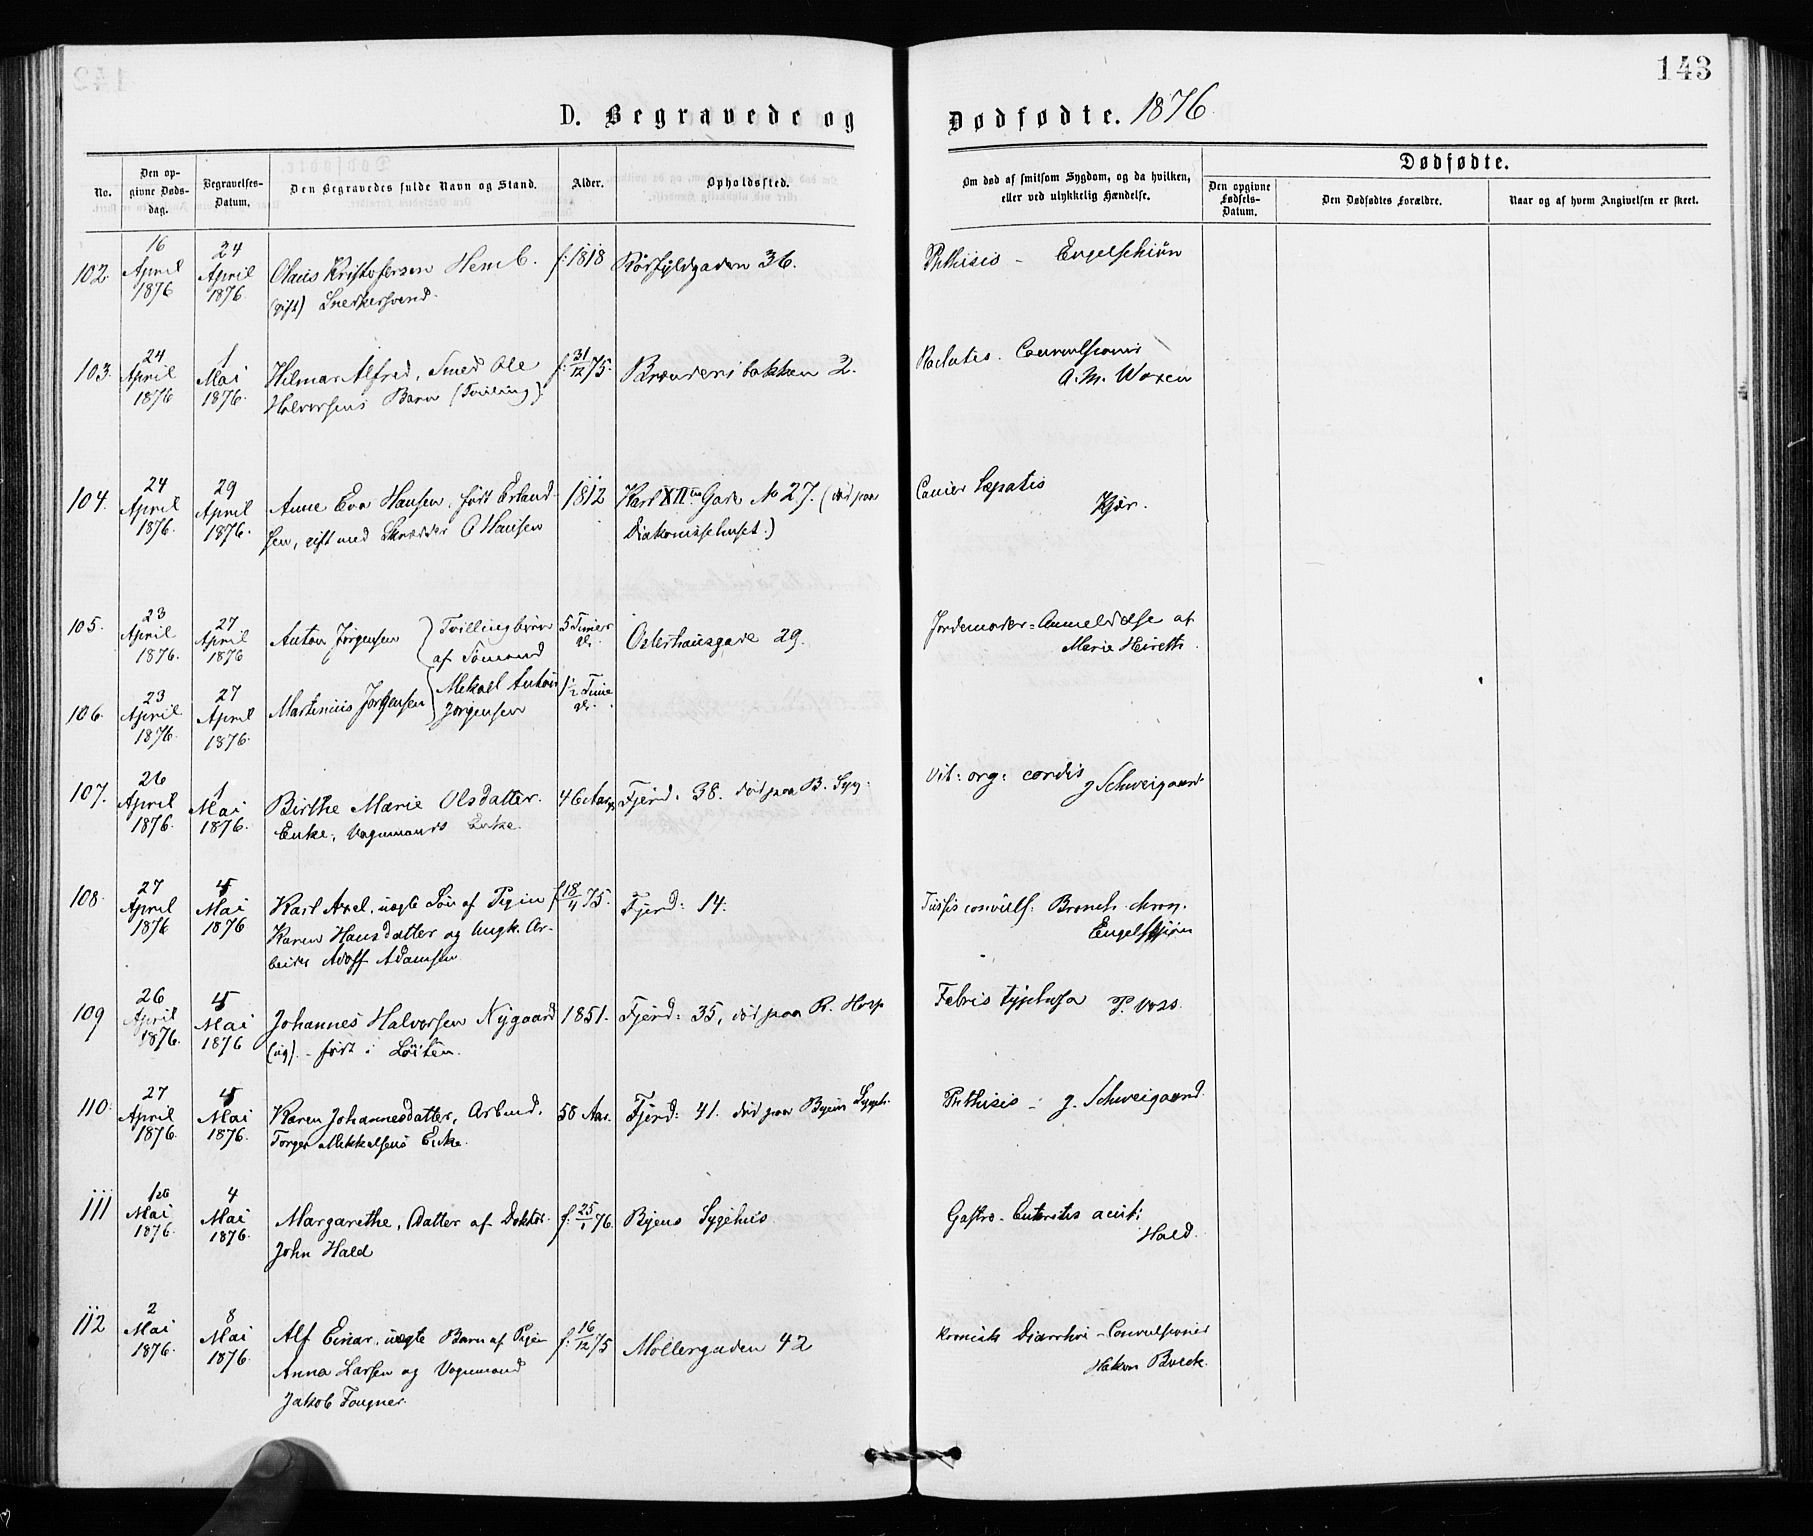 143
D. Begravede og Dødfødte. 1876
No.
Den opgivne Døds-
dag.
Begravelses-
Datum.
Den Begravedes fulde Navn og Stand.
Alder.
Opholdssted.
Om død af smitsom Sygdom, og da hvilken,
eller ved ulykkelig Hændelse.
Dødfødte.
Den opgivne
Fødsels-
Datum.
Den Dødfødtes Forældre.
Naar og af hvem Angivelsen er skeet.
102.
16
April
1876
24
April
1876.
Olaus Kristofersen Hemb.
(gift) Snedkersvend.
f. 1818
Rørfyldgaden 36.
Phthisis - Engelschiøn
103.
24
April
1876
1
Mai
1876.
Hilmar Alfred, Smed Ole
Halvorsens Barn (Tvilling).
f. 31/12 75.
Brænneribakken 2.
Rachitis. Convulsioner
A. M. Woxen
104.
24
April
1876.
29
April
1876.
Anne Eva Hansen, født Erland-
sen, gift med Skrædder O Hansen
1812
Karl XII Gade No 27. (død paa
Diakonissehuset.)
Cancer hepatis
Kjær.
105.
23
April
1876.
27
April
1876
Anton Jørgensen
Tvillingbørn
af Sømand
5 Timer
gl.
Osterhausgade 29.
Jordemoder-Anmeldelse af
Marie Heireth.
106.
23
April
1876.
27
April
1876.
Martinius Jørgensen
Mekael Anton
Jørgensen
1/2 Time
gl.
107.
26
April
1876.
1
Mai
1876.
Birthe Marie Olsdatter.
Enke, Vognmands Enke.
46 Aar
Fjerd. 38. død paa B. Syg:
Vit: org: cordis
J Schweigaard
108.
27
April
1876
5
Mai
1876
Karl Axel, uægte Søn af Pigen
Karen Hansdatter og Ungk. Ar-
beider Adolf Adamsen
f 18/11 75.
Fjerd: 14.
Tussis convuls: Bronch. chron.
Engelschiøn
109
26
April
1876.
5
Mai
1876
Johannes Halvorsen Nygaard
(ug). - født i Løiten.
1851.
Fjerd: 35, død paa R. Hosp
Febris typhosa P. Voss.
110.
27
April
1876.
5
Mai
1876.
Karen Johannesdatter, Arbmd.
Torger Mikkelsens Enke.
58 Aar.
Fjerd: 41. død paa Byens Sygeh.
Phthisis - J. Schweigaard.
111
1ste
Mai
1876.
4
Mai
1876.
Margarethe, Datter af Doktor
John Hald
f. 25/1 76.
Byens Sygehus.
Gastro-Enteritis acut:
Hald.
112
2
Mai
1876.
8
Mai
1876.
Alf Einar, uægte Barn af Pigen
Anna Larsen og Vognmand
Jakob Fougner.
f. 16/12 75
Møllergaden 42
kronisk Diarrhoe - Convulsioner
Hakon Burck.